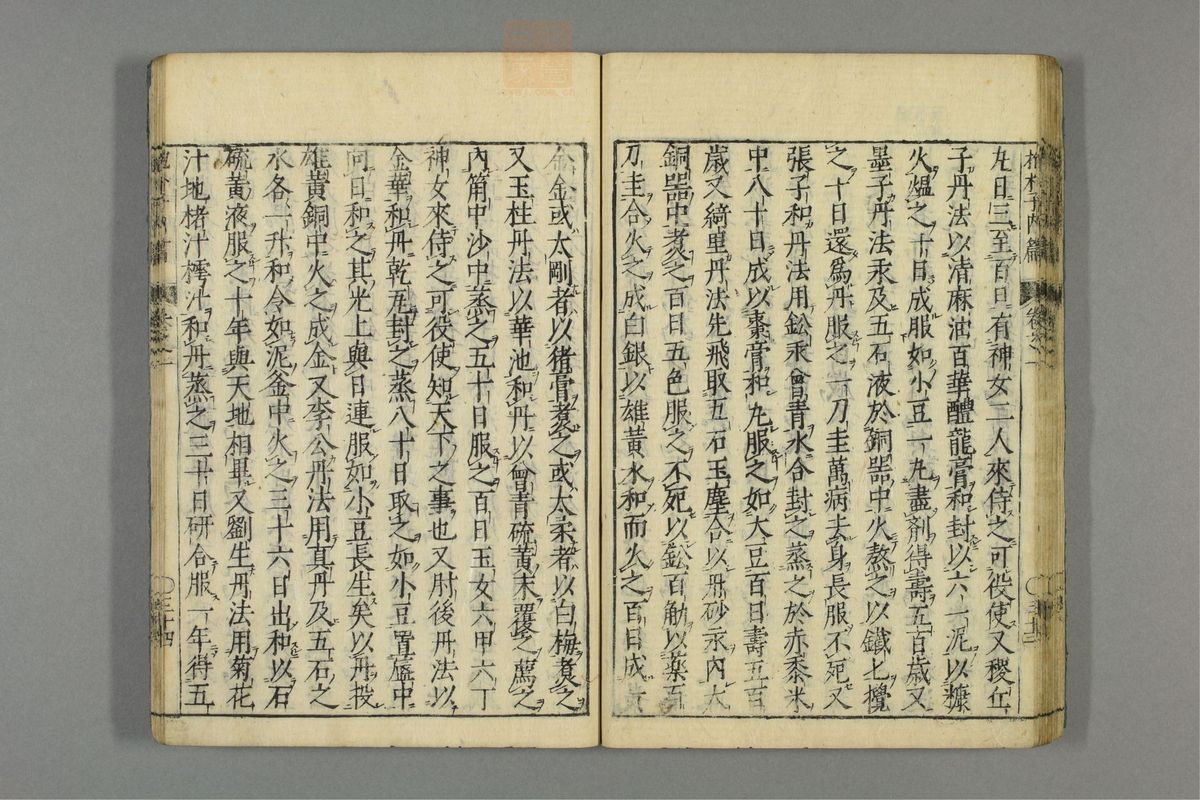 丸日三至百日有神女二人來侍之可役使又稷丘
子丹法以清麻油百華醴龍膏和封以六一泥以糠
火熅之十日成服如小豆一丸盡劑得壽五百歲又
墨子丹法汞及五石液於銅器中火熬之以鐵匕攪
之十日還爲丹服之一刀圭萬病去身長服不死又
張子和丹法用鉛汞曾青水合封之蒸之於赤黍米
中八十日成以棗膏和丸服之如大豆百日壽五百
歲又綺里丹法先飛取五石玉塵合以丹砂汞內大
銅器中煮之百日五色服之不死以鉛百觔以藥百
刀圭合火之成白銀以雄黃水和而火之百日成黃
金金或太剛者以猪膏煮之或太柔者以白梅煮之
又玉柱丹法以華池和丹以曾青硫黃末覆之薦之
內筩中沙中蒸之五十日服之百日玉女六甲六丁
神女來侍之可役使知天下之事也又肘後丹法以
金華和丹乾瓦封之蒸八十日取之如小豆置盤中
向日和之其光上與日連服如小豆長生矣以丹投
雄黃銅中火之成金又李公丹法用真丹及五石之
水各一升和令如泥釜中火之三十六日出和以石
硫黃液服之十年與天地相畢又劉生丹法用菊花
汁地楮汁樗汁和丹蒸之三十日研合服一年得五